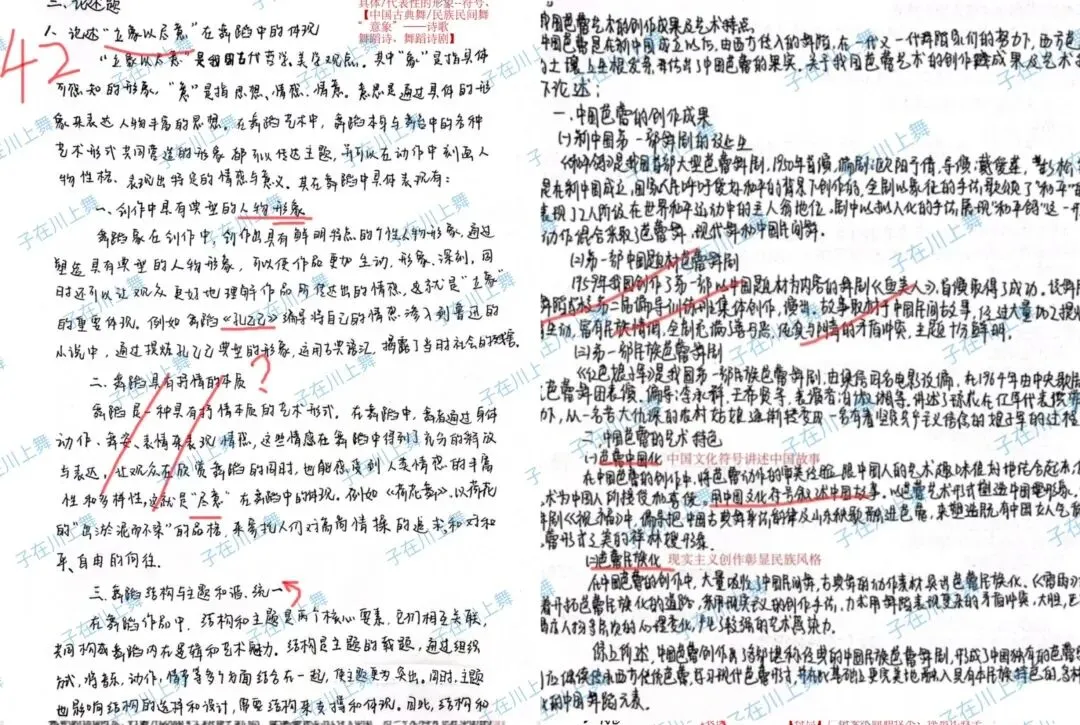 三、论述题
具体/代表性的形象--符号、
【中国古典舞/民族民间舞
"意象"——诗歌
舞蹈诗，舞蹈诗剧】
1、论述"立象以尽意"在舞蹈中的体现
42
"立象以尽意"是我国古代哲学、美学观点。其中"象"是指具体
可感知的形象，"意"是指思想、情感、情意。意思是通过具体的形
象来表达人物丰富的思想。在舞蹈艺术中，舞蹈本身与舞台中的各种
艺术形式共同营造的形象都可以传达主题，并可以在动作中刻画人
物性格、表现出特定的情感与意义。其在舞蹈中具体表现有：
一、创作中具有典型的人物形象
舞蹈家在创作中，创作出具有鲜明特点的个性人物形象，通过
塑造具有典型的人物形象，可以使作品更加生动、形象、深刻，同
时还可以让观众更好地理解作品所传达出的情感，这就是"立象"
的重要体现。例如舞蹈《孔乙己》编导将自己的情感注入到鲁迅的
小说中，通过模炼孔乙己典型的形象，运用古典语汇，揭露了当时社会的
二、舞蹈具有抒情的本质
?
舞蹈是一种具有抒情本质的艺术形式。在舞蹈中，舞者通过身体
动作、舞姿、表情来表现情感，这些情感在舞蹈中得到了充分的释放
与表达，让观众在欣赏舞蹈的同时，也能感受到人类情感的丰富
性和多样性，这就是"尽意"在舞蹈中的体现。例如《荷花舞》，以荷花
的"出淤泥而不染"的品格，来寄托人们对高尚情操的追求和对和
平、自由的向往。
三、舞蹈结构与主题和谐、统一
在舞蹈作品中，结构和主题是两个核心要素，它们相互关联，
共同构成舞蹈内在逻辑和艺术魅力。结构是主题的载体，通过组织
方式，将音乐、动作、情节等多个方面结合在一起，使主题更为突出。同时，主题
也影响结构的选择和设计，需要结构来支撑和体现。因此，结构和
中国芭蕾艺术的创作成果及艺术特点
中国芭蕾是在新中国成立以后，由西方传入的舞蹈，在一代又一代舞蹈家们的努力下，西方芭
的土壤上生根发芽并结出了中国芭蕾的果实。关于我国芭蕾艺术的创作成果及艺术
下论述：
一、中国芭蕾的创作成果
(1)新中国第一部舞剧的诞生
《和平鸽》是我国首部大型芭蕾舞剧，1950年首演，编剧：欧阳予倩，导演：戴爱莲，
是在新中国成立，国家人民呼吁爱好和平的背景下创作的，全剧以象征的手法歌颂了"和平"
表现了工人阶级在世界和平运动中的主人翁地位。剧中以拟人化的手法展现"和平鸽"这一
动作混合采取了芭蕾舞、现代舞和中国民间舞。
(2)第一部中国题材芭蕾舞剧
1959年我国创作了第一部以中国题材为内容的舞剧《鱼美人》，首演取得了成功。该舞剧
舞蹈学校第二届编导训练班集体创作，演出。故事取材于中国民间故事，经过大量加工提炼
生动，富有民族情调，全剧充满了善与恶、光复与阴暗的矛盾冲突，主题十分鲜明。
(3)第一部民族芭蕾舞剧
《红色娘子军》是我国第一部民族芭蕾舞剧，由梁信同名电影改编，在1964年由中央歌剧
芭蕾舞团表演，编导：李承祥、王希贤等，
下，从一名苦大仇深的农村姑娘逐渐转变成一名有着坚定共产主义信念的娘子军的过程
二、中国芭蕾的艺术特色
(1)芭蕾中国化 中国文化符号讲述中国故事
在中国芭蕾的创作中，将芭蕾动作的审美经验跟中国人的艺术趣味恰到好处地结合起来，
术为中国人所接受和喜爱。用中国文化符号叙述中国故事，以芭蕾艺术形式塑造中国型形象。
舞剧《祝福》中，编导把中国古典舞身法韵律及山东秧歌融进芭蕾，来塑造既有中国女人气
芭蕾形式之美的祥林嫂形象。
(2)芭蕾民族化 现实主义创作彰显民族风格
在中国芭蕾的创作中，大量吸收了中国民间舞、古典舞的动作素材突出芭蕾民族化，《雷雨》
着开拓芭蕾民族化的道路，采用现实主义的创作手法，力求用舞蹈表现复杂的矛盾冲突，大胆
人物多层次的心理变化，产生了较强的艺术感染力。
综上所述，中国芭蕾创作
的中国舞蹈元素。
子在川上舞